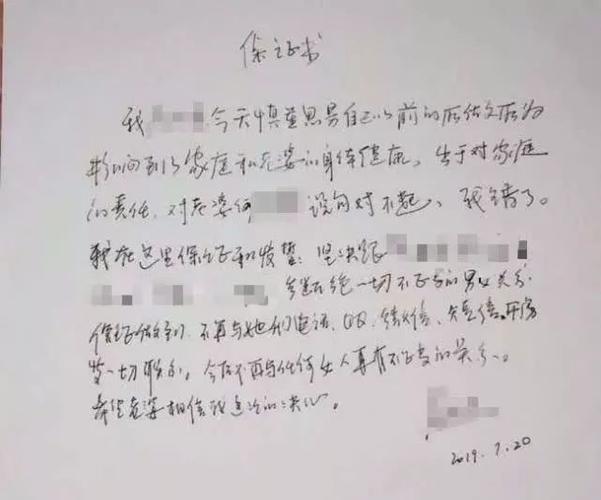 保证书
我 今天慎重思考自己以前的所做所为
影响到了家庭和老婆的身体健康。出于对家庭
的责任，对老婆何 说句对不起，我错了。
我在这里保证和发誓：坚决跟
断绝一切不正当的男女关系.
保证做到，不再与她们电话、QQ、微信、短信、开房
等一切联系，今后不再与任何女人再有不正当的关系。
希望老婆相信我这次的决心。
2019.7.20